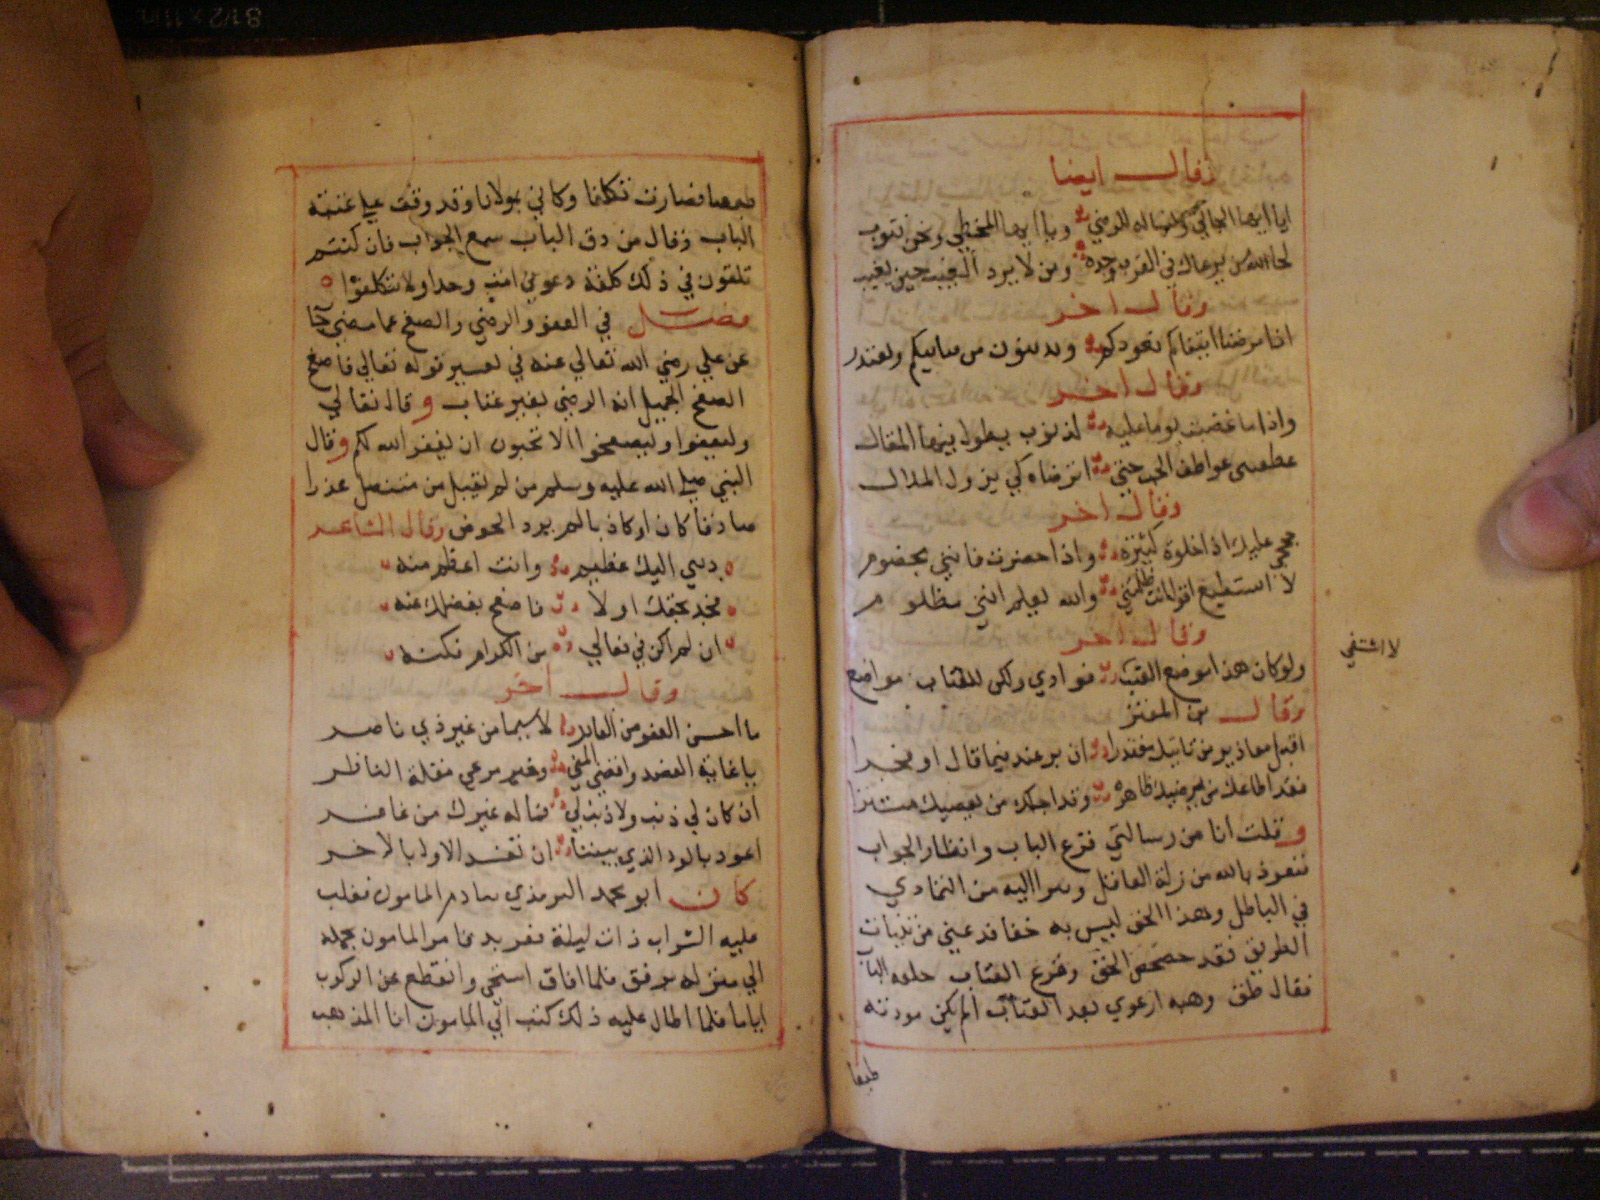 وقال ايضا
ايا ايها الجاني ونساله الرضي ويا ايها المخطي ونحن نتوب
لحا الله من يرعاك في القرب وحده ومن لا يرد الغيب حين يغيب
وقال اخر
اذا مرضنا اتيناكم نعودكم وتذنبون فناتيكم ونعتذر
وقال اخر
واذا ما غضبت يوما عليه لذنوب يطول بينها المقال
عطفتني عواطف الحب حتى اترضاه كي يزول الملال
وقال اخر
حججي عليك اذا خلوت كثيرة واذا حضرت فانني مخصوم
لا استطيع اقول انت ظلمتني والله يعلم انني مظلوم
وقال اخر
ولو كان هذا موضع العتب فوادي ولكن للعتاب مواضع
لا اشتفي
وقال بن المعتز
اقبل معاذير من ياتيك معتذرا ان بر عندك فيما قال او فجرا
فقد اطاعك من يرضيك ظاهره وقد اجلك من يعصيك مستترا
وقلت انا من رسالتي قرع الباب وانتظار الجواب
نتعوذ بالله من زلة العاقل ونبرا اليه من التمادي
في الباطل وهذا الحق ليس به خفا فدعني من بنيات
الطريق فقد حصحص الحق وقرع العتاب حلقه الباب
فقال طق وهبه ارعوي بعد العتاب الم يكن مودته
طبعا
طبعا فصارت تكلفا وكاني بمولانا وقد وقف علي عتبة
الباب وقال من دق الباب سمع الجواب فان كنتم
تلقون في ذلك كلفة دعوني امت وحدا ولا تتكلفوا
فصل في العفو والرضي والصفح عما مضي جا
عن علي رضي الله تعالي عنه في تفسير قوله تعالي فاصفح
الصفح الجميل انه الرضي بغير عتاب وقال تعالي
وليعفوا وليصفحوا الا تحبون ان يغفر الله لكم وقال
النبي صلي الله عليه وسلم من لم يقبل من متنصل عذرا
صادقا كان او كاذبا لم يرد الحوض وقال الشاعر
ذنبي اليك عظيم وانت اعظم منه
فخذ بحقك اولا فاصفح بفضلك عنه
ان لم اكن في فعالي من الكرام فكنه
وقال اخر
ما احسن العفو من القادر لا سيما من غير ذي ناصر
يا غاية القصد واقصي المني وخير مرعي مقلة الناظر
ان كان لي ذنب ولا ذنب لي فما له غيرك من غافر
اعوذ بالود الذي بيننا ان تفسد الاول بالاخر
كان ابو محمد اليزيدي ينادم المامون فغلب
عليه الشراب ذات ليلة فعربد فامر المامون بحمله
الي منزله برفق فلما افاق استحي وانقطع عن الركوب
اياما فلما اطال عليه ذلك كتب الي المامون انا المذنب